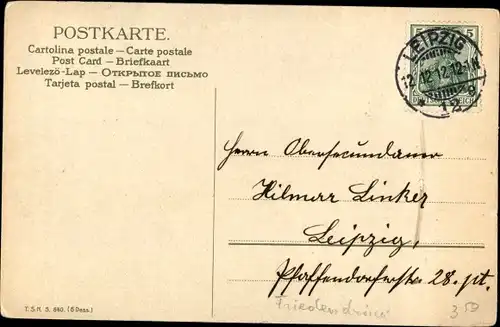 POSTKARTE.
Cartolina postale — Carte postale
Post Card — Briefkaart
Levelező-Lap — Открытое письмо
Tarjeta postal — Brefkort
5 5
LEIPZIG
12.12.12.12-1N
* 12
Herrn Obersecundaner
Hilmar Linker
Leipzig,
Pfaffendorferstr. 28. pt.
T. S. N. S. 640. (6 Dess.)
3 50